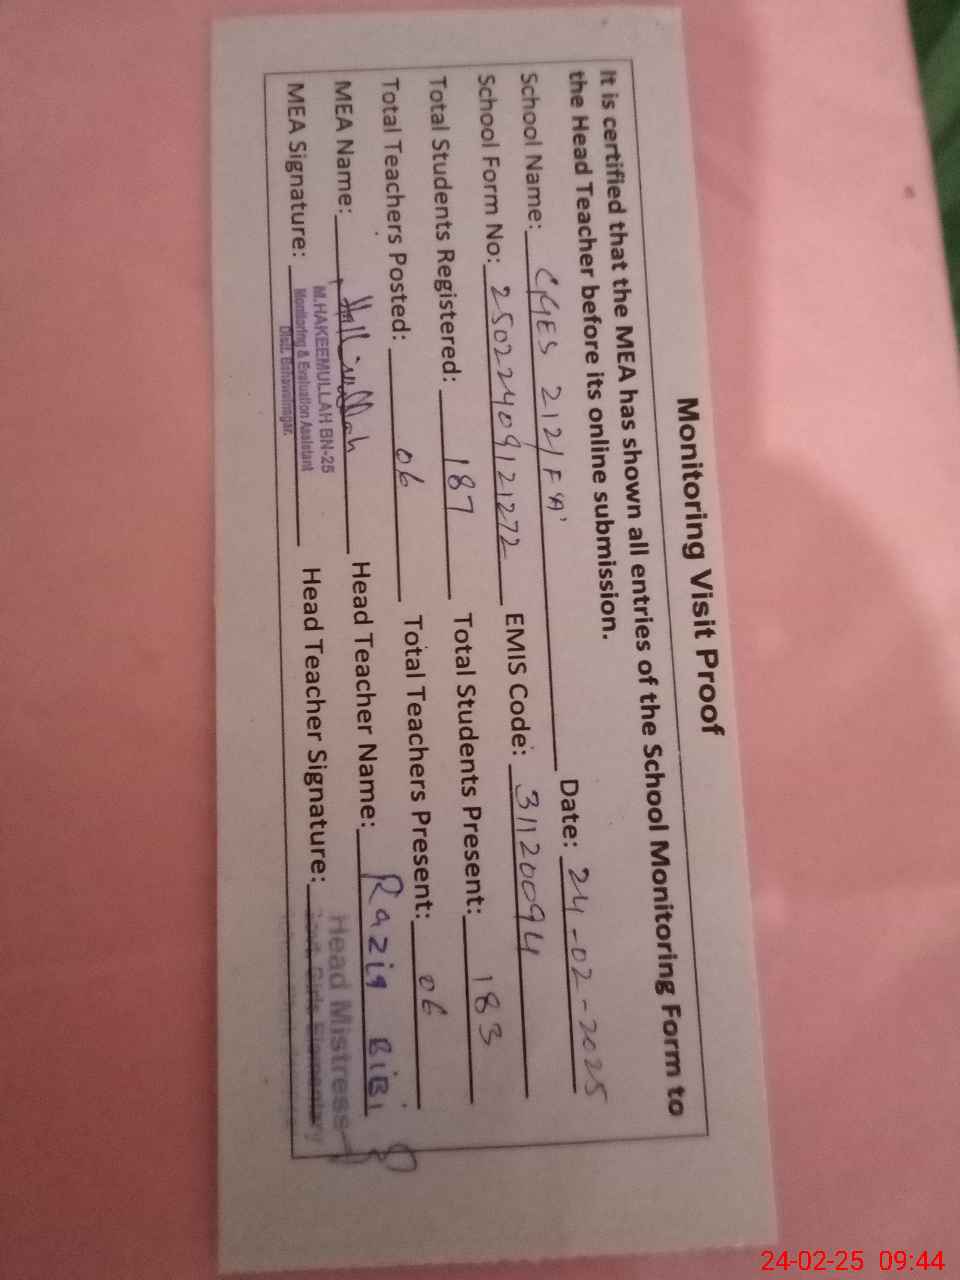 Monitoring Visit Proof
It is certified that the MEA has shown all entries of the School Monitoring Form to
the Head Teacher before its online submission.
School Name: GGES 212/F 'A' Date: 24-02-2025
School Form No: 25022409121272 EMIS Code: 31120094
Total Students Registered: 187 Total Students Present: 183
Total Teachers Posted: 06 Total Teachers Present: 06
MEA Name: Head Teacher Name: Razia BiBi
MEA Signature: Head Teacher Signature:
M.HAKEEMULLAH BN-25
Monitoring & Evaluation Assistant
Distt. Bahawalnagar.
Head Mistress
Govt. Girls Elementary
24-02-25 09:44